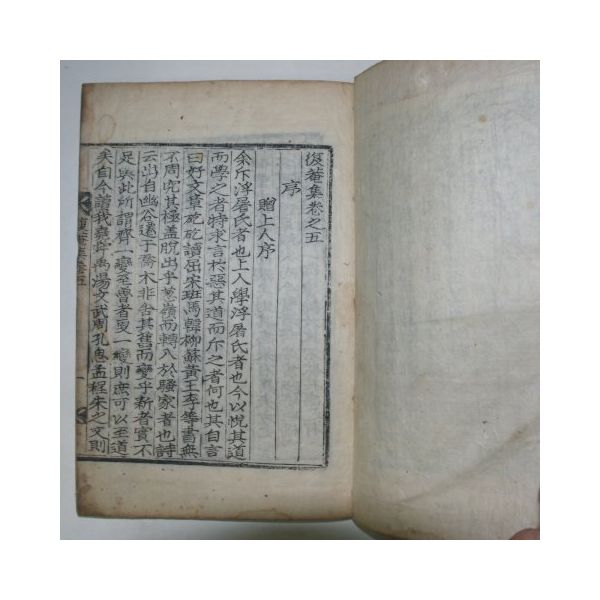 復菴集卷之五
序
贈上人序
余斥浮屠氏者也上人學浮屠氏者也今以悅其道
而學之者特求言於惡其道而斥之者何也其自言
曰好文章矻矻讀屈宋班馬韓柳蘇黃王李等書無
不周究其極盖脫出乎葱嶺而轉入於騷家者也詩
云出自幽谷遷于喬木非舍其舊而變乎新者實不
足與此所謂齊一變至魯者更一變則庶可以至道
矣自今讀我堯舜禹湯文武周孔思孟程朱之文則
復菴集卷五